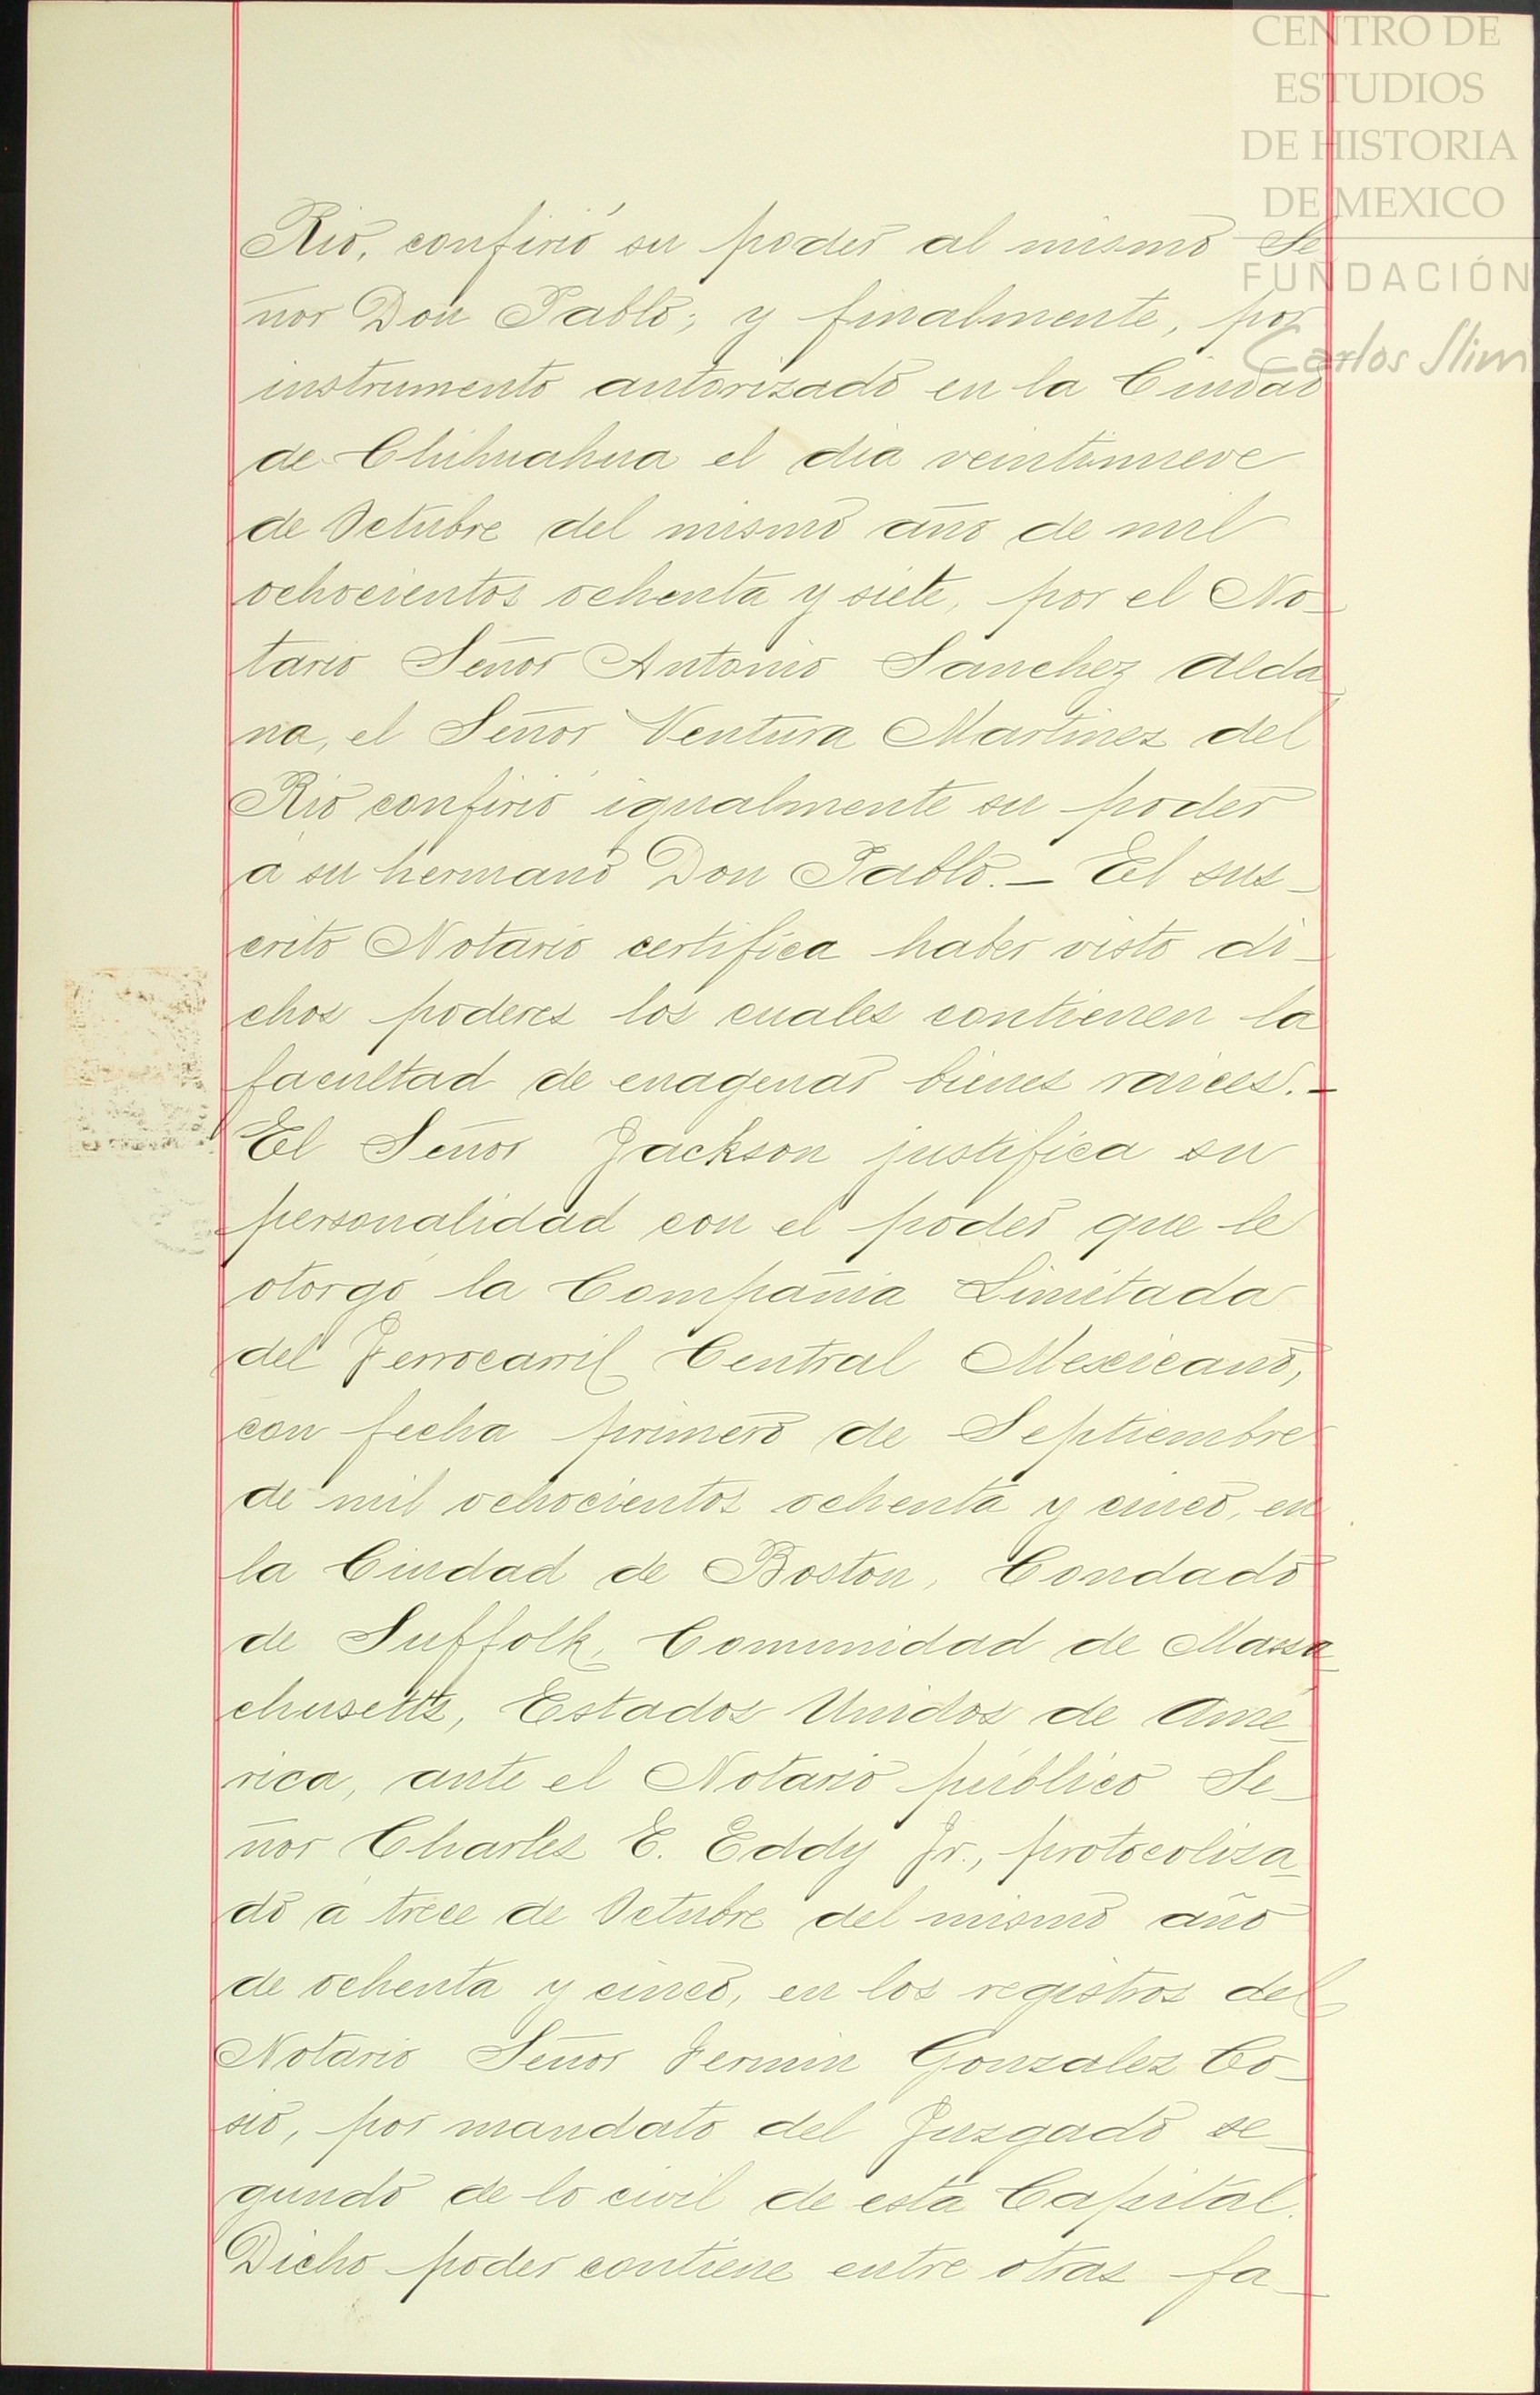 CENTRO DE
ESTUDIOS
DE HISTORIA
DE MEXICO
FUNDACIÓN
Carlos Slim
Rio, confirió su poder al mismo Se
ñor Don Pablo; y finalmente, por
instrumento autorizado en la Ciudad
de Chihuahua el dia veintinueve
de Octubre del mismo año de mil
ochocientos ochenta y siete, por el No-
tario Señor Antonio Sanchez Alda-
na, el Señor Ventura Martinez del
Rio confirió igualmente su poder
á su hermano Don Pablo. — El sus-
crito Notario certifica haber visto di-
chos poderes los cuales contienen la
facultad de enagenar bienes raices. —
El Señor Jackson justifica su
personalidad con el poder que le
otorgó la Compañia Limitada
del Ferrocarril Central Mexicano,
con fecha primero de Septiembre
de mil ochocientos ochenta y cinco, en
la Ciudad de Boston, Condado
de Suffolk, Comunidad de Massa-
chusetts, Estados Unidos de Amé-
rica, ante el Notario público Se-
ñor Charles E. Eddy Jr., protocoliza-
do á trece de Octubre del mismo año
de ochenta y cinco, en los registros del
Notario Señor Fermin Gonzalez Co-
sio, por mandato del Juzgado se-
gundo de lo civil de esta Capital.
Dicho poder contiene entre otras fa-